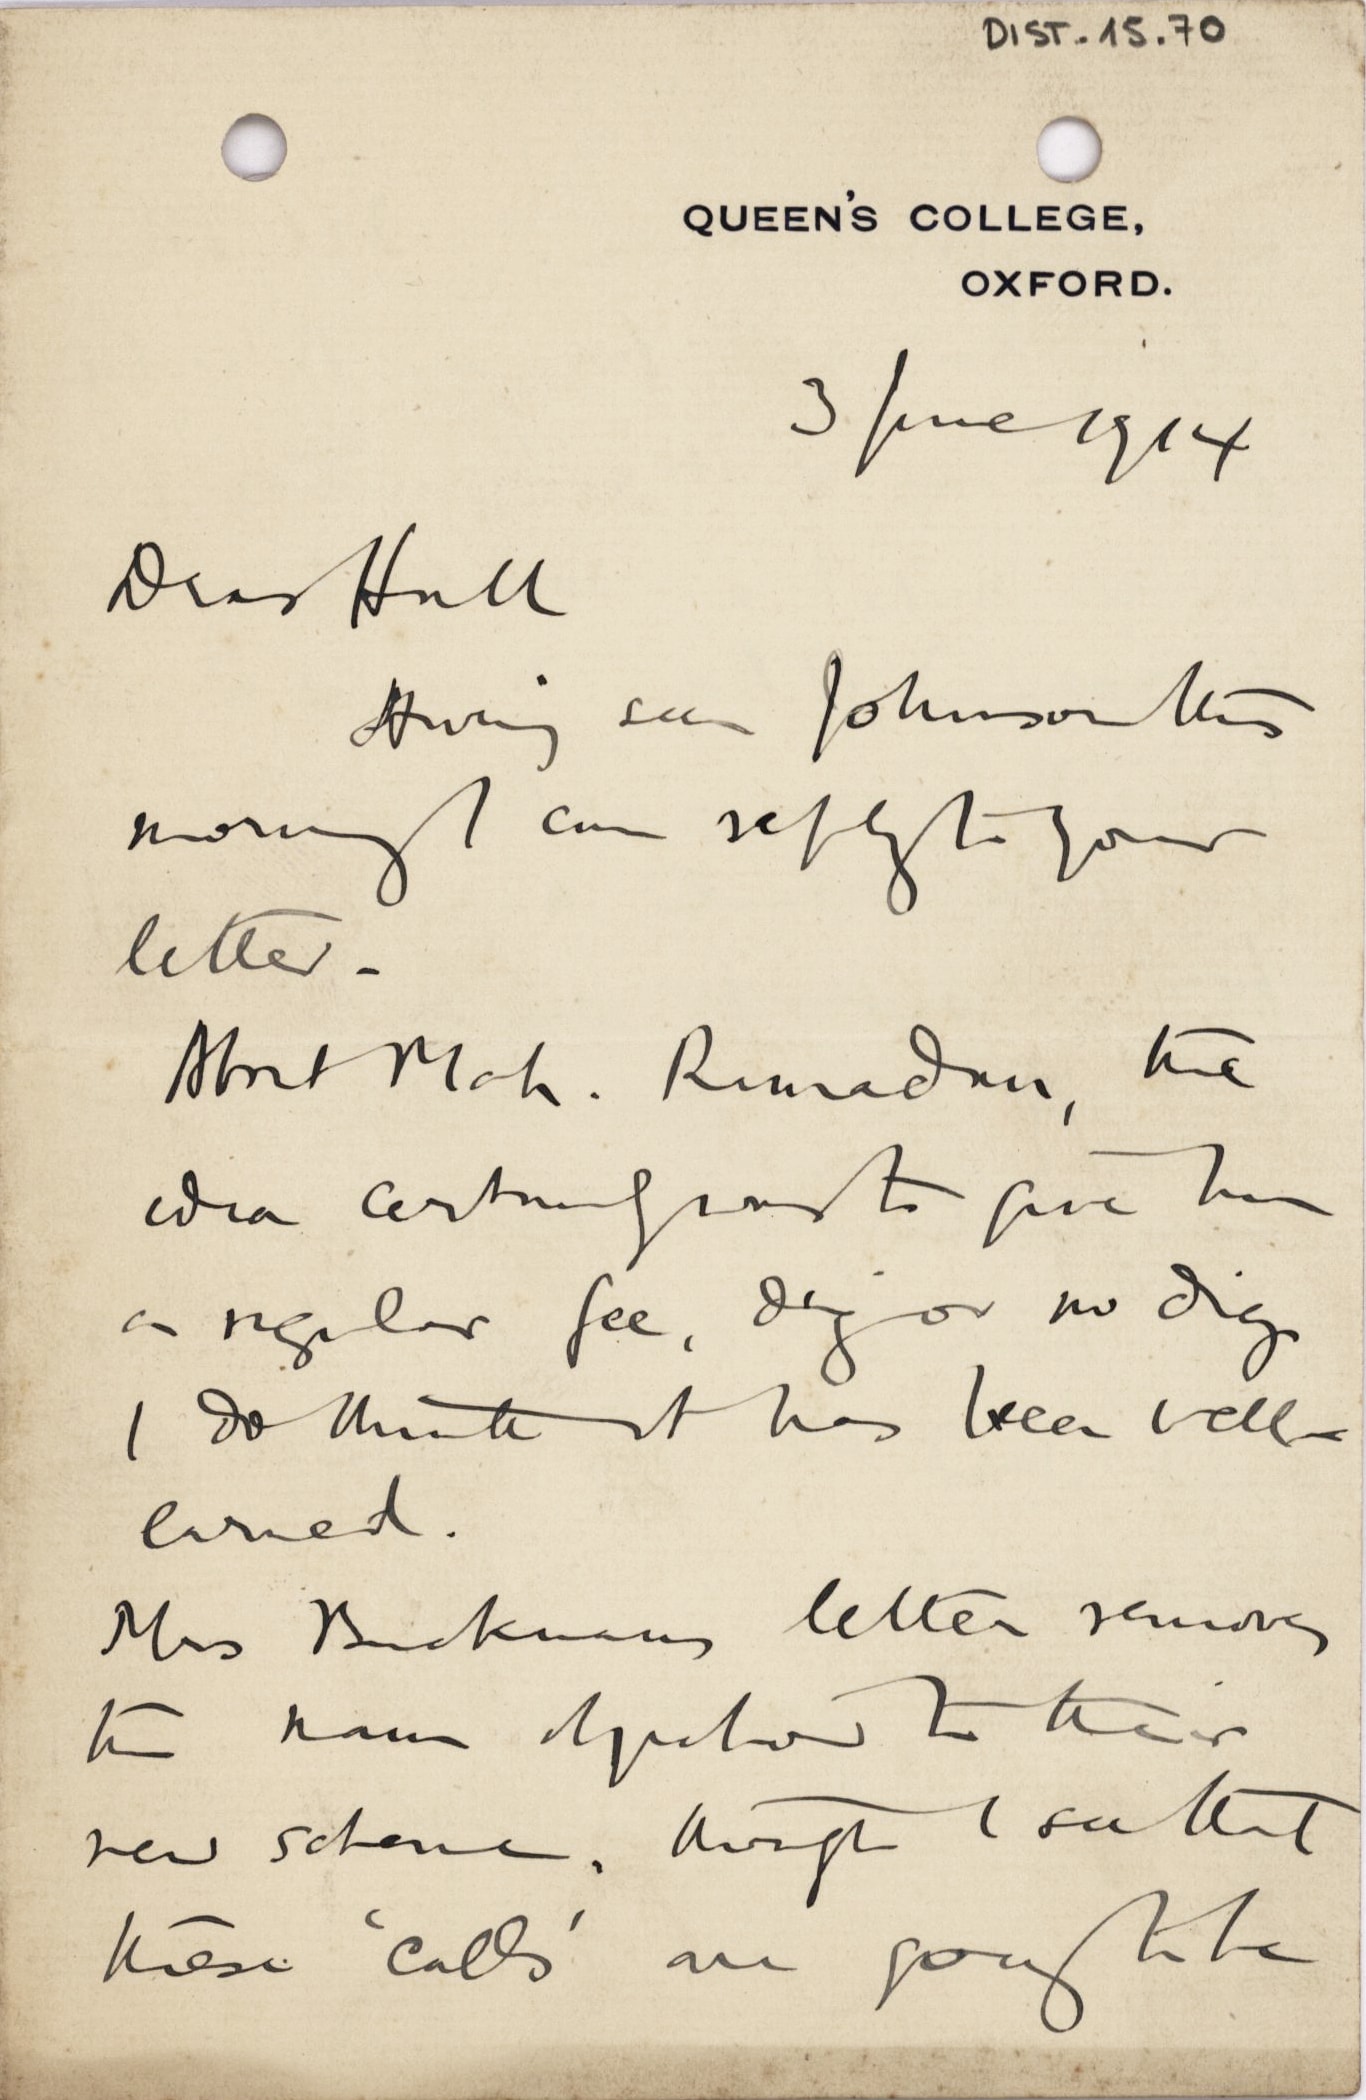 DIST. 15.70
QUEEN'S COLLEGE,
OXFORD.
3 June 1914
Dear Hall
Having seen Johnson this
morning I can reply to your
letter -
About Moh. Ramadan, the
idea certainly was to give him
a regular fee, dig or no dig
I do think it has been well
earned.
Mrs Buckmans letter removes
the main objection to their
new scheme, though I see that
these 'calls' are going to be